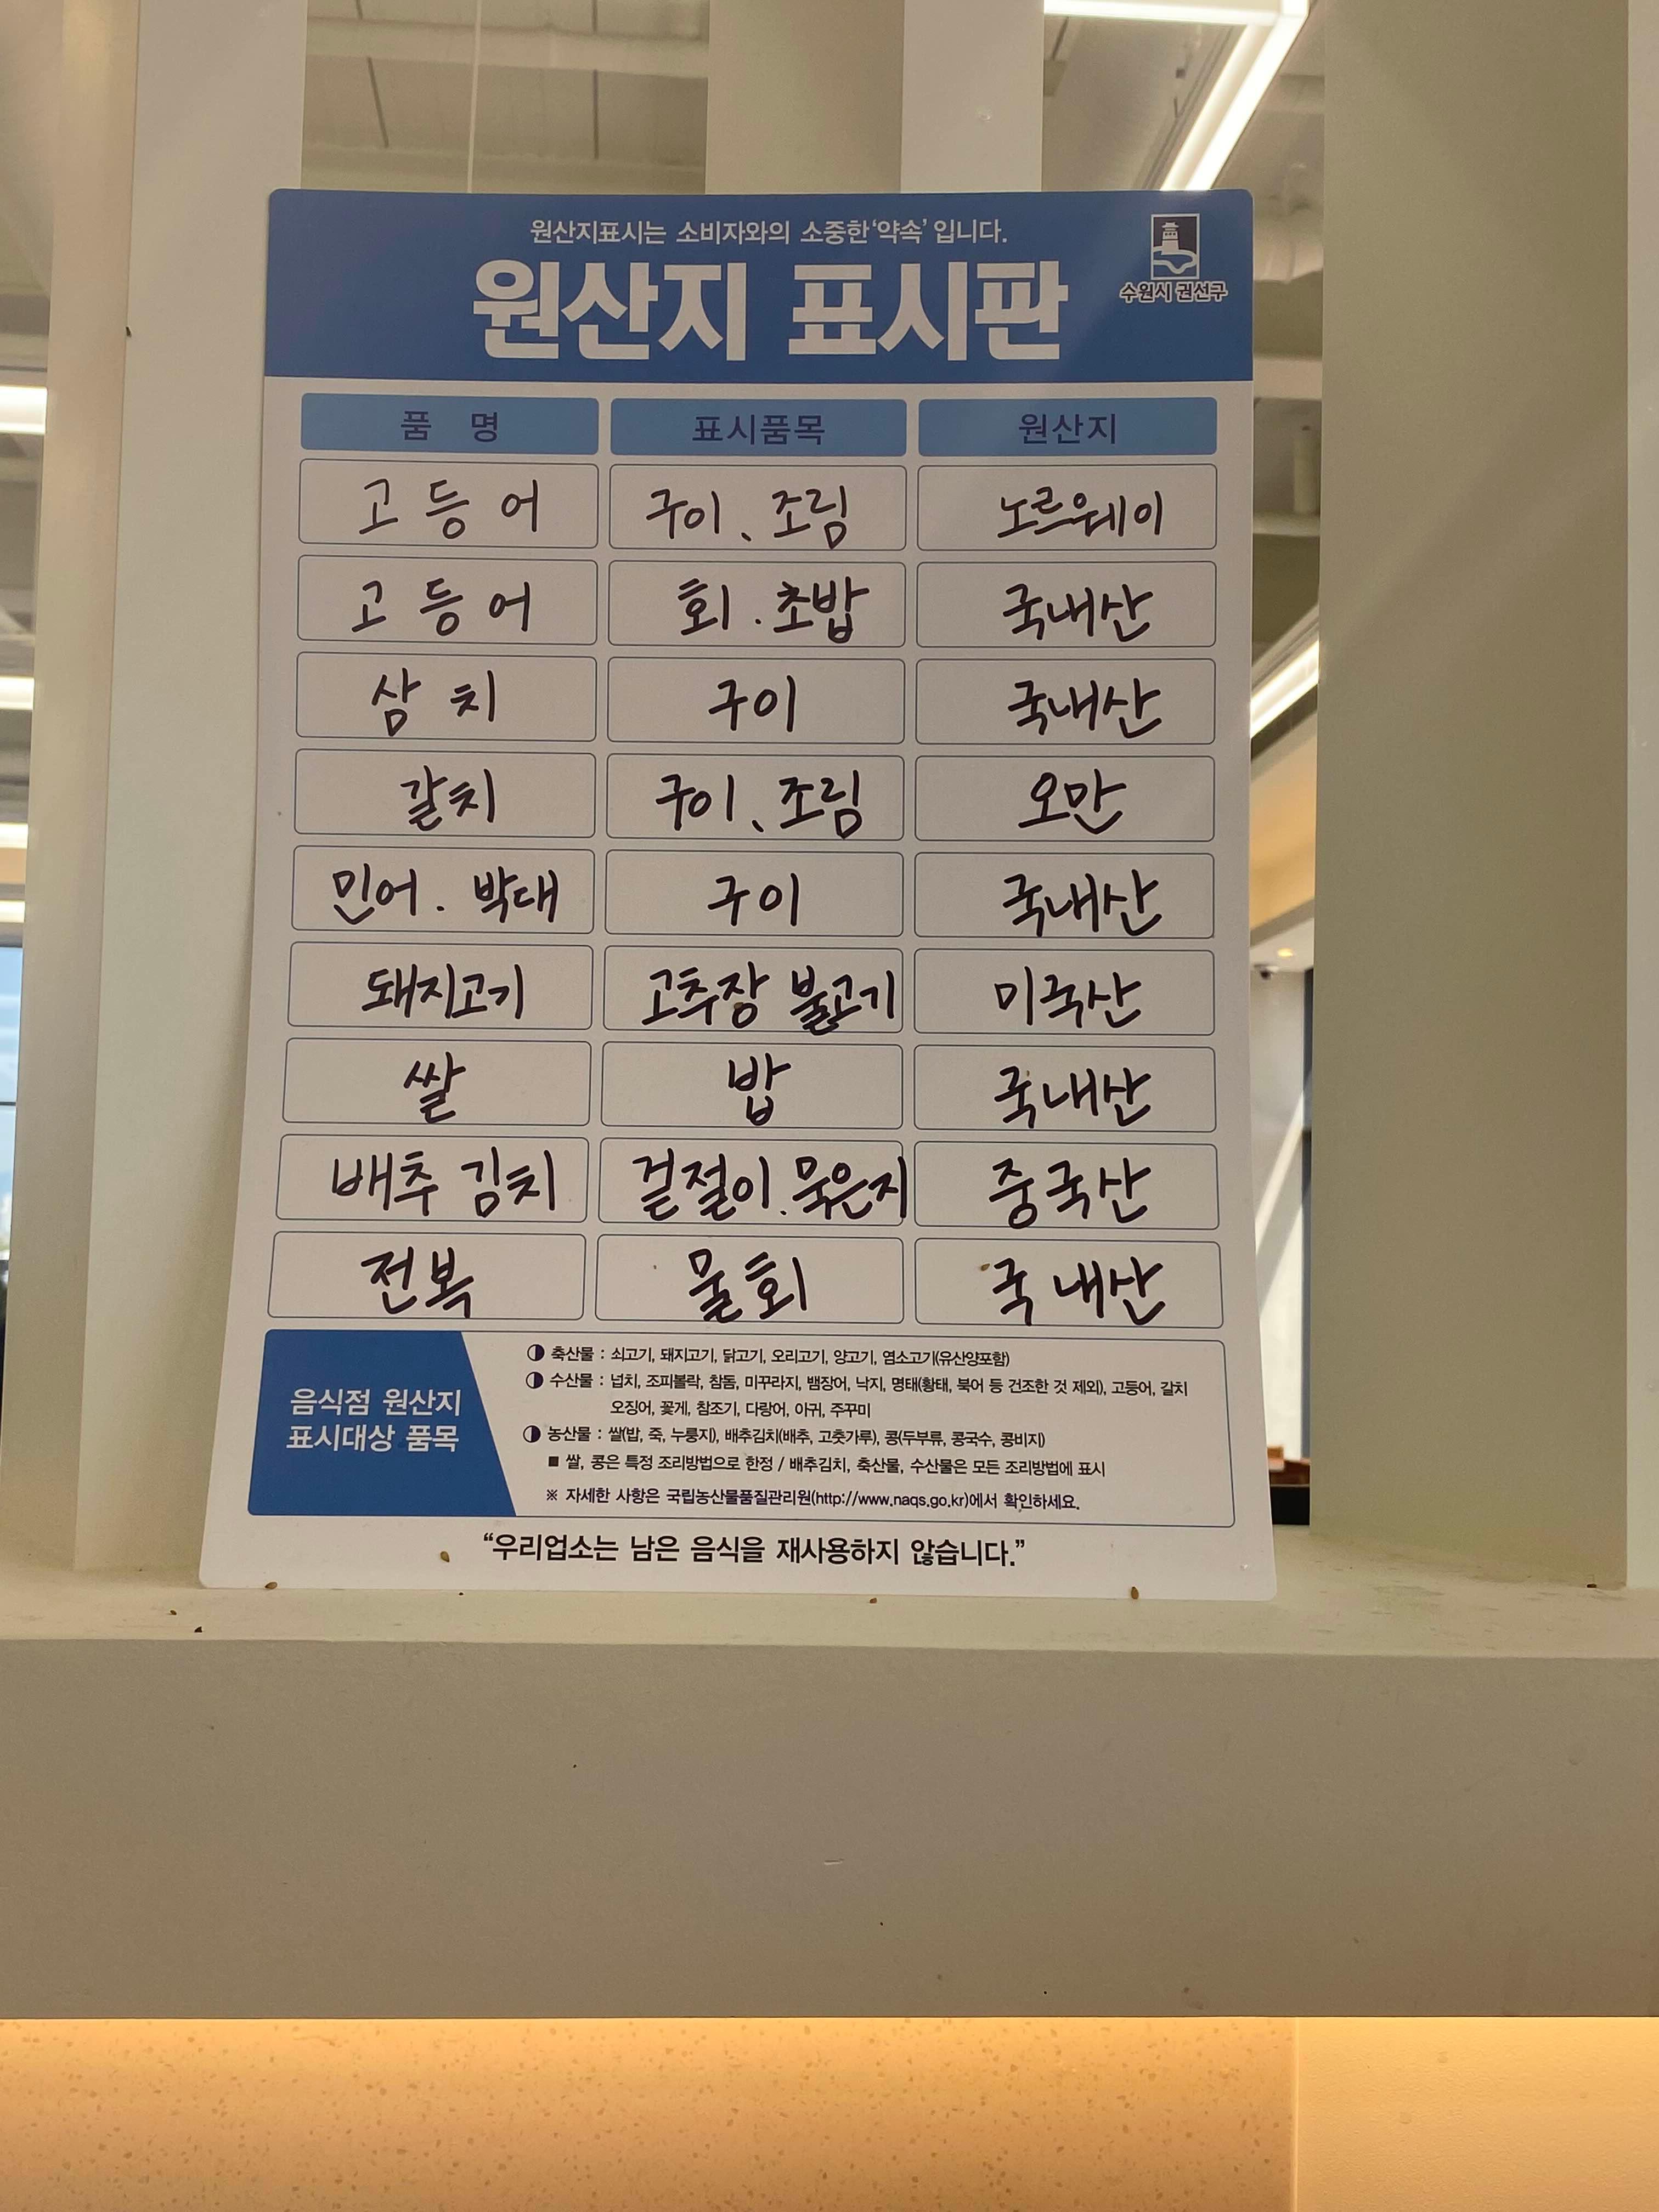 원산지표시는 소비자와의 소중한 '약속' 입니다.
원산지 표시판
수원시 권선구
품 명 표시품목 원산지
고등어 구이、조림 노르웨이
고등어 회.초밥 국내산
삼치 구이 국내산
갈치 구이、조림 오만
민어. 박대 구이 국내산
돼지고기 고추장 불고기 미국산
쌀 밥 국내산
배추 김치 겉절이.묵은지 중국산
전복 물회 국내산
음식점 원산지
표시대상 품목
축산물 : 쇠고기, 돼지고기, 닭고기, 오리고기, 양고기, 염소고기(유산양포함)
수산물 : 넙치, 조피볼락, 참돔, 미꾸라지, 뱀장어, 낙지, 명태(황태, 북어 등 건조한 것 제외), 고등어, 갈치
오징어, 꽃게, 참조기, 다랑어, 아귀, 주꾸미
농산물 : 쌀(밥, 죽, 누룽지), 배추김치(배추, 고춧가루), 콩(두부류, 콩국수, 콩비지)
■ 쌀, 콩은 특정 조리방법으로 한정 / 배추김치, 축산물, 수산물은 모든 조리방법에 표시
※ 자세한 사항은 국립농산물품질관리원(http://www.naqs.go.kr)에서 확인하세요.
“우리업소는 남은 음식을 재사용하지 않습니다.”